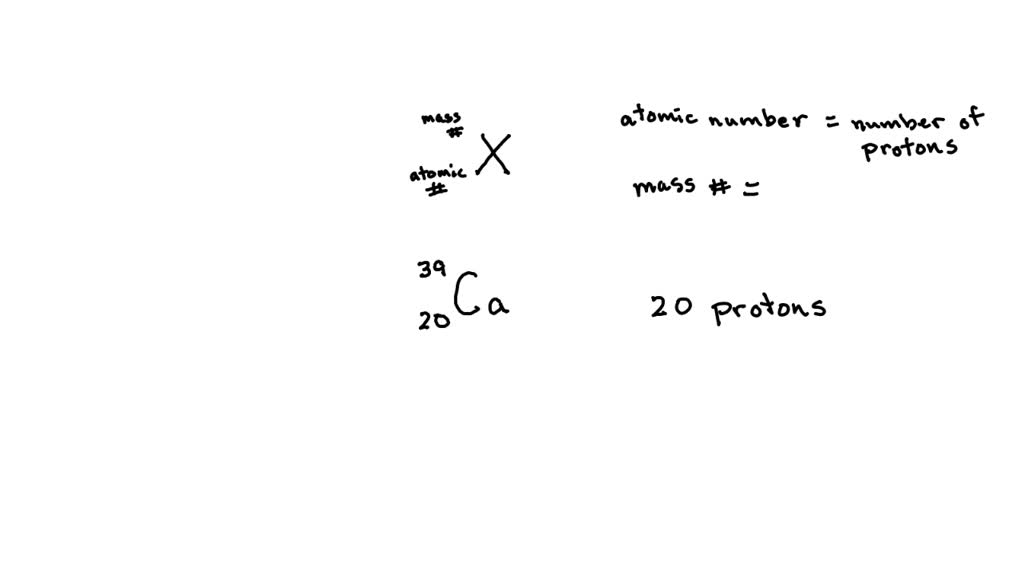 mass
#
X
atomic
#
atomic number = number of
protons
mass # =
39
Ca
20
20 protons